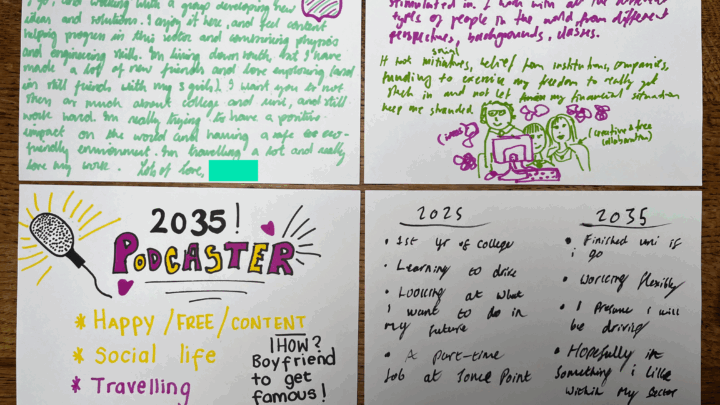 I go, and working with a group developing new
ideas and solutions. I enjoy it here, and feel content
helping progress in this sector and combining physics
and engineering skills. Im living down south, but I have
made a lot of new friends and love exploring (and
im still friends with my 5 girls). I want you to not
stress as much about college and uni, and still
work hard. Im really trying to have a positive
impact on the world and having a safe eco-
friendly environment. Im travelling a lot and really
love my work. Lots of Love,
stimulated in. I work with all the different
types of people in the world from different
perspectives, backgrounds, classes.
It not social initiatives, belief from institutions, companies,
funding to exercise my freedom to really get
stuck in and not let my financial situation
keep me stranded
(ideas)
(creative & free
collaboration)
2035!
PODCASTER
* Happy/FREE/CONTENT
* Social life
* Travelling
HOW?
Boyfriend
to get
famous!
2025
• 1st yr of college
• Learning to drive
• Looking at what
i want to do in
my future
• A part-time
Job at Point
2035
• Finished uni if
i go
• Working flexibly
• I presume i will
be driving
• Hopefully in
something i like
within my sector